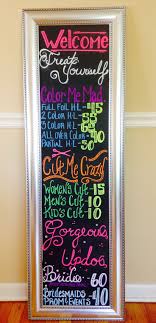 Welcome
Treat
Yourself
Color Me Mad
Full Foil H-L - 65
2 Color H-L
3 Color H-L
All Over Color - 40
Partial H-L - 50
Cut Me Crazy
Women's Cut - 15
Men's Cut - 10
Kid's Cut - 10
Gorgeous
Updos
Brides - 60
Bridesmaids 40
Prom & Events